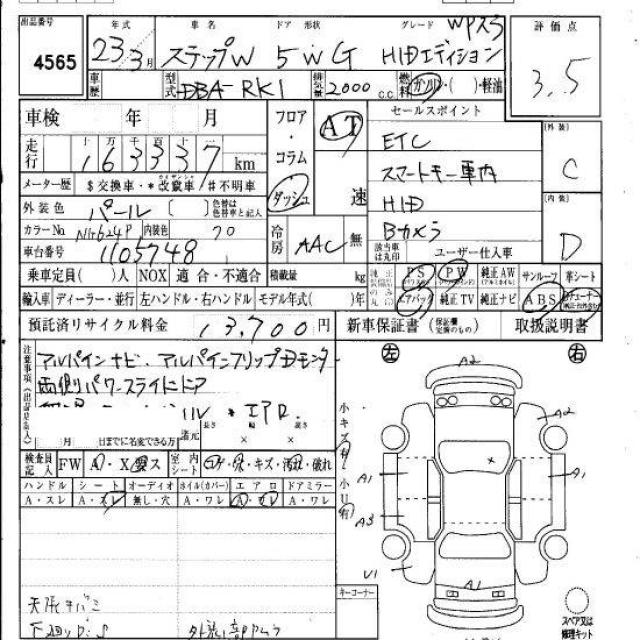 出品番号 年式 車名 ドア 形状 グレード Wアスラ 評価点
4565 23 3月 ステップW 5 W G HIDエディション 3.5
車歴 型式 DBA-RK1 排気量 2000 c.c. 燃料 ガソリン・( )・軽油
車検 年 月 フロア・コラム・ダッシュ AT 速 セールスポイント 外装
走行 十 万 千 百 十 一 163337 km ETC C
メーター歴 $交換車・*改竄車・#不明車 スマートキー車内 内装
外装色 パール ( ) 色替は色替車と記入 HID D
カラーNo. NH624P 内装色 70 冷房 AAC 無 Bカメラ
車台番号 1105748 該当車は丸印 ユーザー仕入車
乗車定員( )人 NOX 適合・不適合 積載量 kg 純正のみ丸印 PS PW 純正AW サンルーフ 革シート
輸入車 ディーラー・並行 左ハンドル・右ハンドル モデル年式( )年 エアバック 純正TV 純正ナビ ABS エアチューナー
預託済リサイクル料金 13,700円 新車保証書(保証欄完済のもの) 取扱説明書
注意事項(出品店記入) アルパインナビ・アルパインフリップDモニター 左 右
両側パワースライドドア A2
エアロ 小キズ有 A2
月 日までに名変できる方 諸元 長さ 幅 高さ × ×
検査員記入 FW A・X要ス 室内シート コゲ・穴・キズ・汚れ・破れ A1 A1
ハンドル シート オーディオ ホイル(カバー) エアロ ドアミラー 小U有
A・スレ A・スレ 無し・穴 A・ワレ A・ワレ A・ワレ A3
U1 A1
キーコーナー
天張キバミ
下廻りサビS スペア又は修理キット